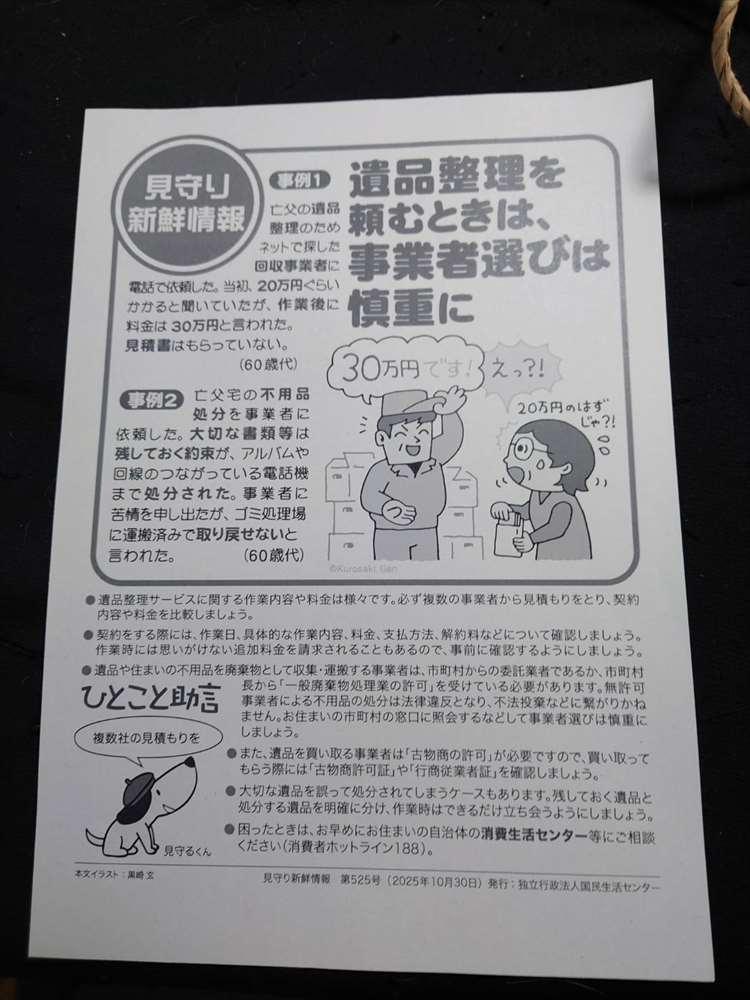 見守り
新鮮情報
遺品整理を
頼むときは、
事業者選びは
慎重に
事例1
亡父の遺品
整理のため
ネットで探した
回収事業者に
電話で依頼した。当初、20万円ぐらい
かかると聞いていたが、作業後に
料金は30万円と言われた。
見積書はもらっていない。
(60歳代)
事例2 亡父宅の不用品
処分を事業者に
依頼した。大切な書類等は
残しておく約束が、アルバムや
回線のつながっている電話機
まで処分された。事業者に
苦情を申し出たが、ゴミ処理場
に運搬済みで取り戻せないと
言われた。 (60歳代)
30万円です!
えっ?!
20万円のはず
じゃ?!
©Kurosaki Gen
●遺品整理サービスに関する作業内容や料金は様々です。必ず複数の事業者から見積もりをとり、契約
内容や料金を比較しましょう。
●契約をする際には、作業日、具体的な作業内容、料金、支払方法、解約料などについて確認しましょう。
作業時には思いがけない追加料金を請求されることもあるので、事前に確認するようにしましょう。
●遺品や住まいの不用品を廃棄物として収集・運搬する事業者は、市町村からの委託業者であるか、市町村
長から「一般廃棄物処理業の許可」を受けている必要があります。無許可
事業者による不用品の処分は法律違反となり、不法投棄などに繋がりかね
ません。お住まいの市町村の窓口に照会するなどして事業者選びは慎重に
しましょう。
●また、遺品を買い取る事業者は「古物商の許可」が必要ですので、買い取って
もらう際には「古物商許可証」や「行商従業者証」を確認しましょう。
●大切な遺品を誤って処分されてしまうケースもあります。残しておく遺品と
処分する遺品を明確に分け、作業時はできるだけ立ち会うようにしましょう。
●困ったときは、お早めにお住まいの自治体の消費生活センター等にご相談
ください(消費者ホットライン188)。
ひとこと助言
複数社の見積もりを
見守るくん
本文イラスト:黒崎 玄
見守り新鮮情報 第525号(2025年10月30日)発行:独立行政法人国民生活センター